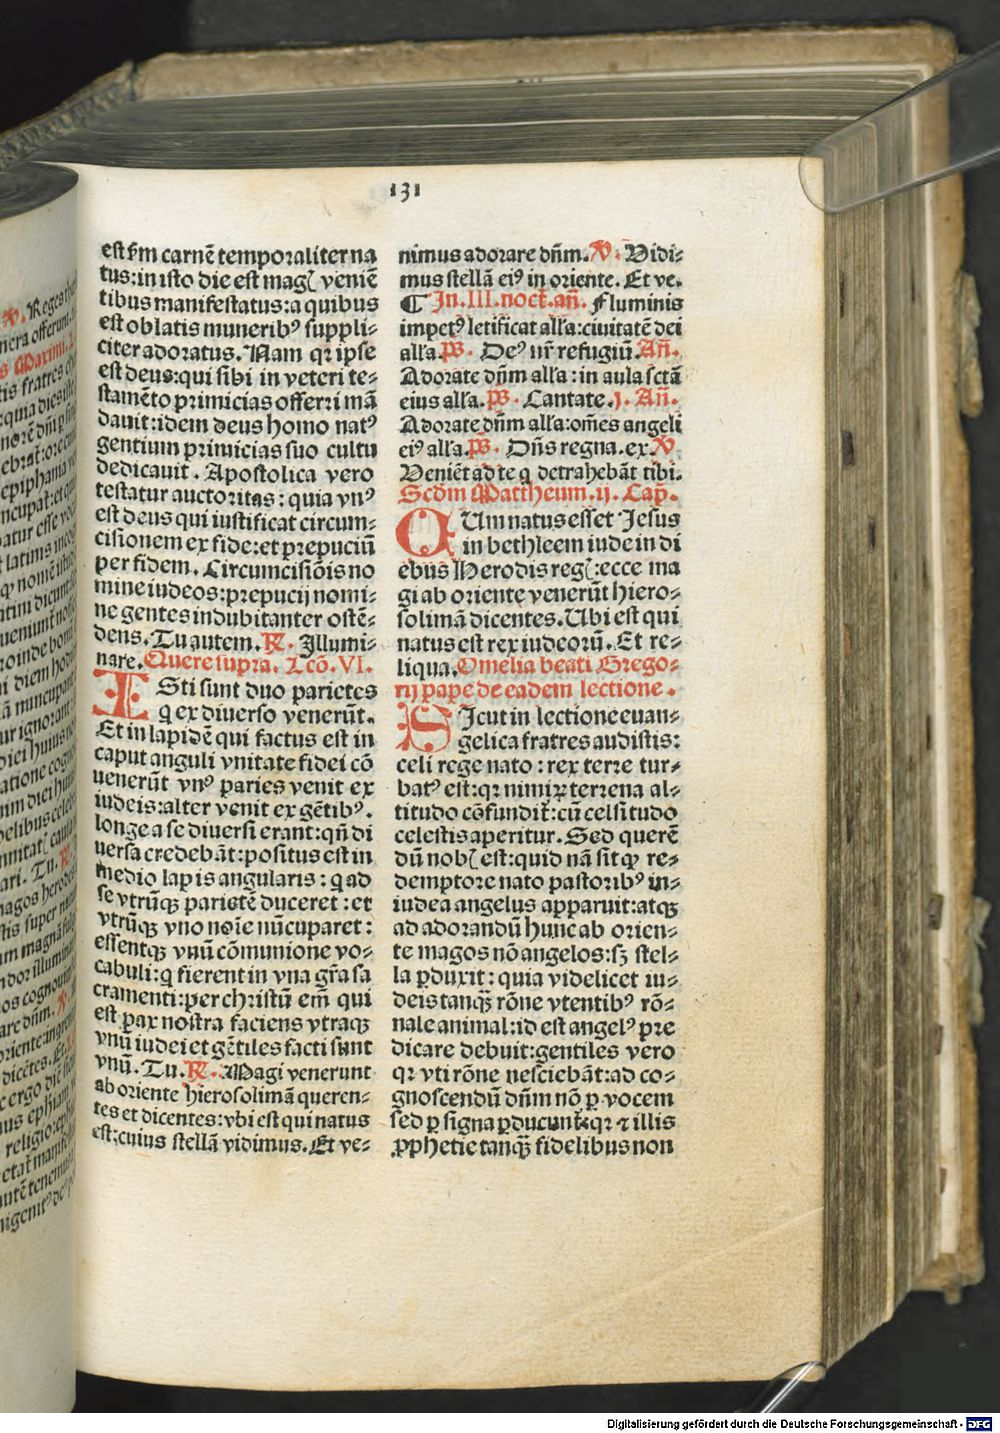 131
est ẜm carnē temporaliter na
tus: in isto die est magꝭ veniē
tibus manifestatus: a quibus
est oblatis muneribꝰ suppli⸗
citer adoratus. Nam qꝛ ipse
est deus: qui sibi in veteri te⸗
stamēto primicias offerri mā
dauit: idem deus homo natꝰ
gentium primicias suo cultu
dedicauit. Apostolica vero
testatur auctoritas: quia vnꝰ
est deus qui iustificat circum⸗
cisionem ex fide: et prepuciū
per fidem. Circumcisiōis no
mine iudeos: prepucij nomi⸗
ne gentes indubitanter ostē⸗
dens. Tu autem. ℟. Illumi⸗
nare. Quere supra. Lcō. VI.
ISti sunt duo parietes
q ex diuerso venerūt.
Et in lapidē qui factus est in
caput anguli vnitate fidei cō
uenerūt vnꝰ paries venit ex
iudeis: alter venit ex gētibꝰ.
longe a se diuersi erant: qn̄ di
uersa credebāt: positus est in
medio lapis angularis: q ad
se vtrūqꝫ parietē duceret: et
vtrūqꝫ vno noīe nūcuparet:
essentqꝫ vnū cōmunione vo⸗
cabuli: q fierent in vna gr̄a sa
cramenti: per christū em̄ qui
est pax nostra faciens vtraqꝫ
vnū iudei et gētiles facti sunt
vnū. Tu. ℟. Magi venerunt
ab oriente hierosolimā queren⸗
tes et dicentes: vbi est qui natus
est: cuius stellā vidimus. Et ve⸗
nimus adorare dn̄m. ℣. Vidi⸗
mus stellā eiꝰ in oriente. Et ve.
¶ In. III. noct̄. an̄. Fluminis
impetꝰ letificat all'a: ciuitatē dei
all'a. Pẜ. Deꝰ nr̄ refugiū. An̄.
Adorate dn̄m all'a: in aula sctā
eius all'a. Pẜ. Cantate. j. An̄.
Adorate dn̄m all'a: om̄es angeli
eiꝰ all'a. Pẜ. Dn̄s regna. ex. ℣.
Veniēt ad te q detrahebāt tibi.
Scd̄m Mattheum. ij. Cap̄.
CUm natus esset Jesus
in bethleem iude in di
ebus Herodis regꝭ: ecce ma
gi ab oriente venerūt hiero⸗
solimā dicentes. Ubi est qui
natus est rex iudeorū. Et re⸗
liqua. Omelia beati Grego⸗
rij pape de eadem lectione.
SIcut in lectione euan⸗
gelica fratres audistis:
celi rege nato: rex terre tur⸗
batꝰ est: qꝛ nimiꝝ terrena al⸗
titudo cōfundit̄: cū celsitudo
celestis aperitur. Sed querē
dū nobꝭ est: quid nā sit ꝙ re⸗
demptore nato pastoribꝰ in⸗
iudea angelus apparuit: atqꝫ
ad adorandū hunc ab orien⸗
te magos nō angelos: sꝫ stel⸗
la ꝑduxit: quia videlicet iu⸗
deis tanqꝫ rōne vtentibꝰ rō⸗
nale animal: id est angelꝰ pre
dicare debuit: gentiles vero
qꝛ vti rōne nesciebāt: ad co⸗
gnoscendū dn̄m nō ꝑ vocem
sed ꝑ signa ꝑducunt̄: qꝛ ⁊ illis
ꝓphetie tanqꝫ fidelibus non
Digitalisierung gefördert durch die Deutsche Forschungsgemeinschaft - DFG